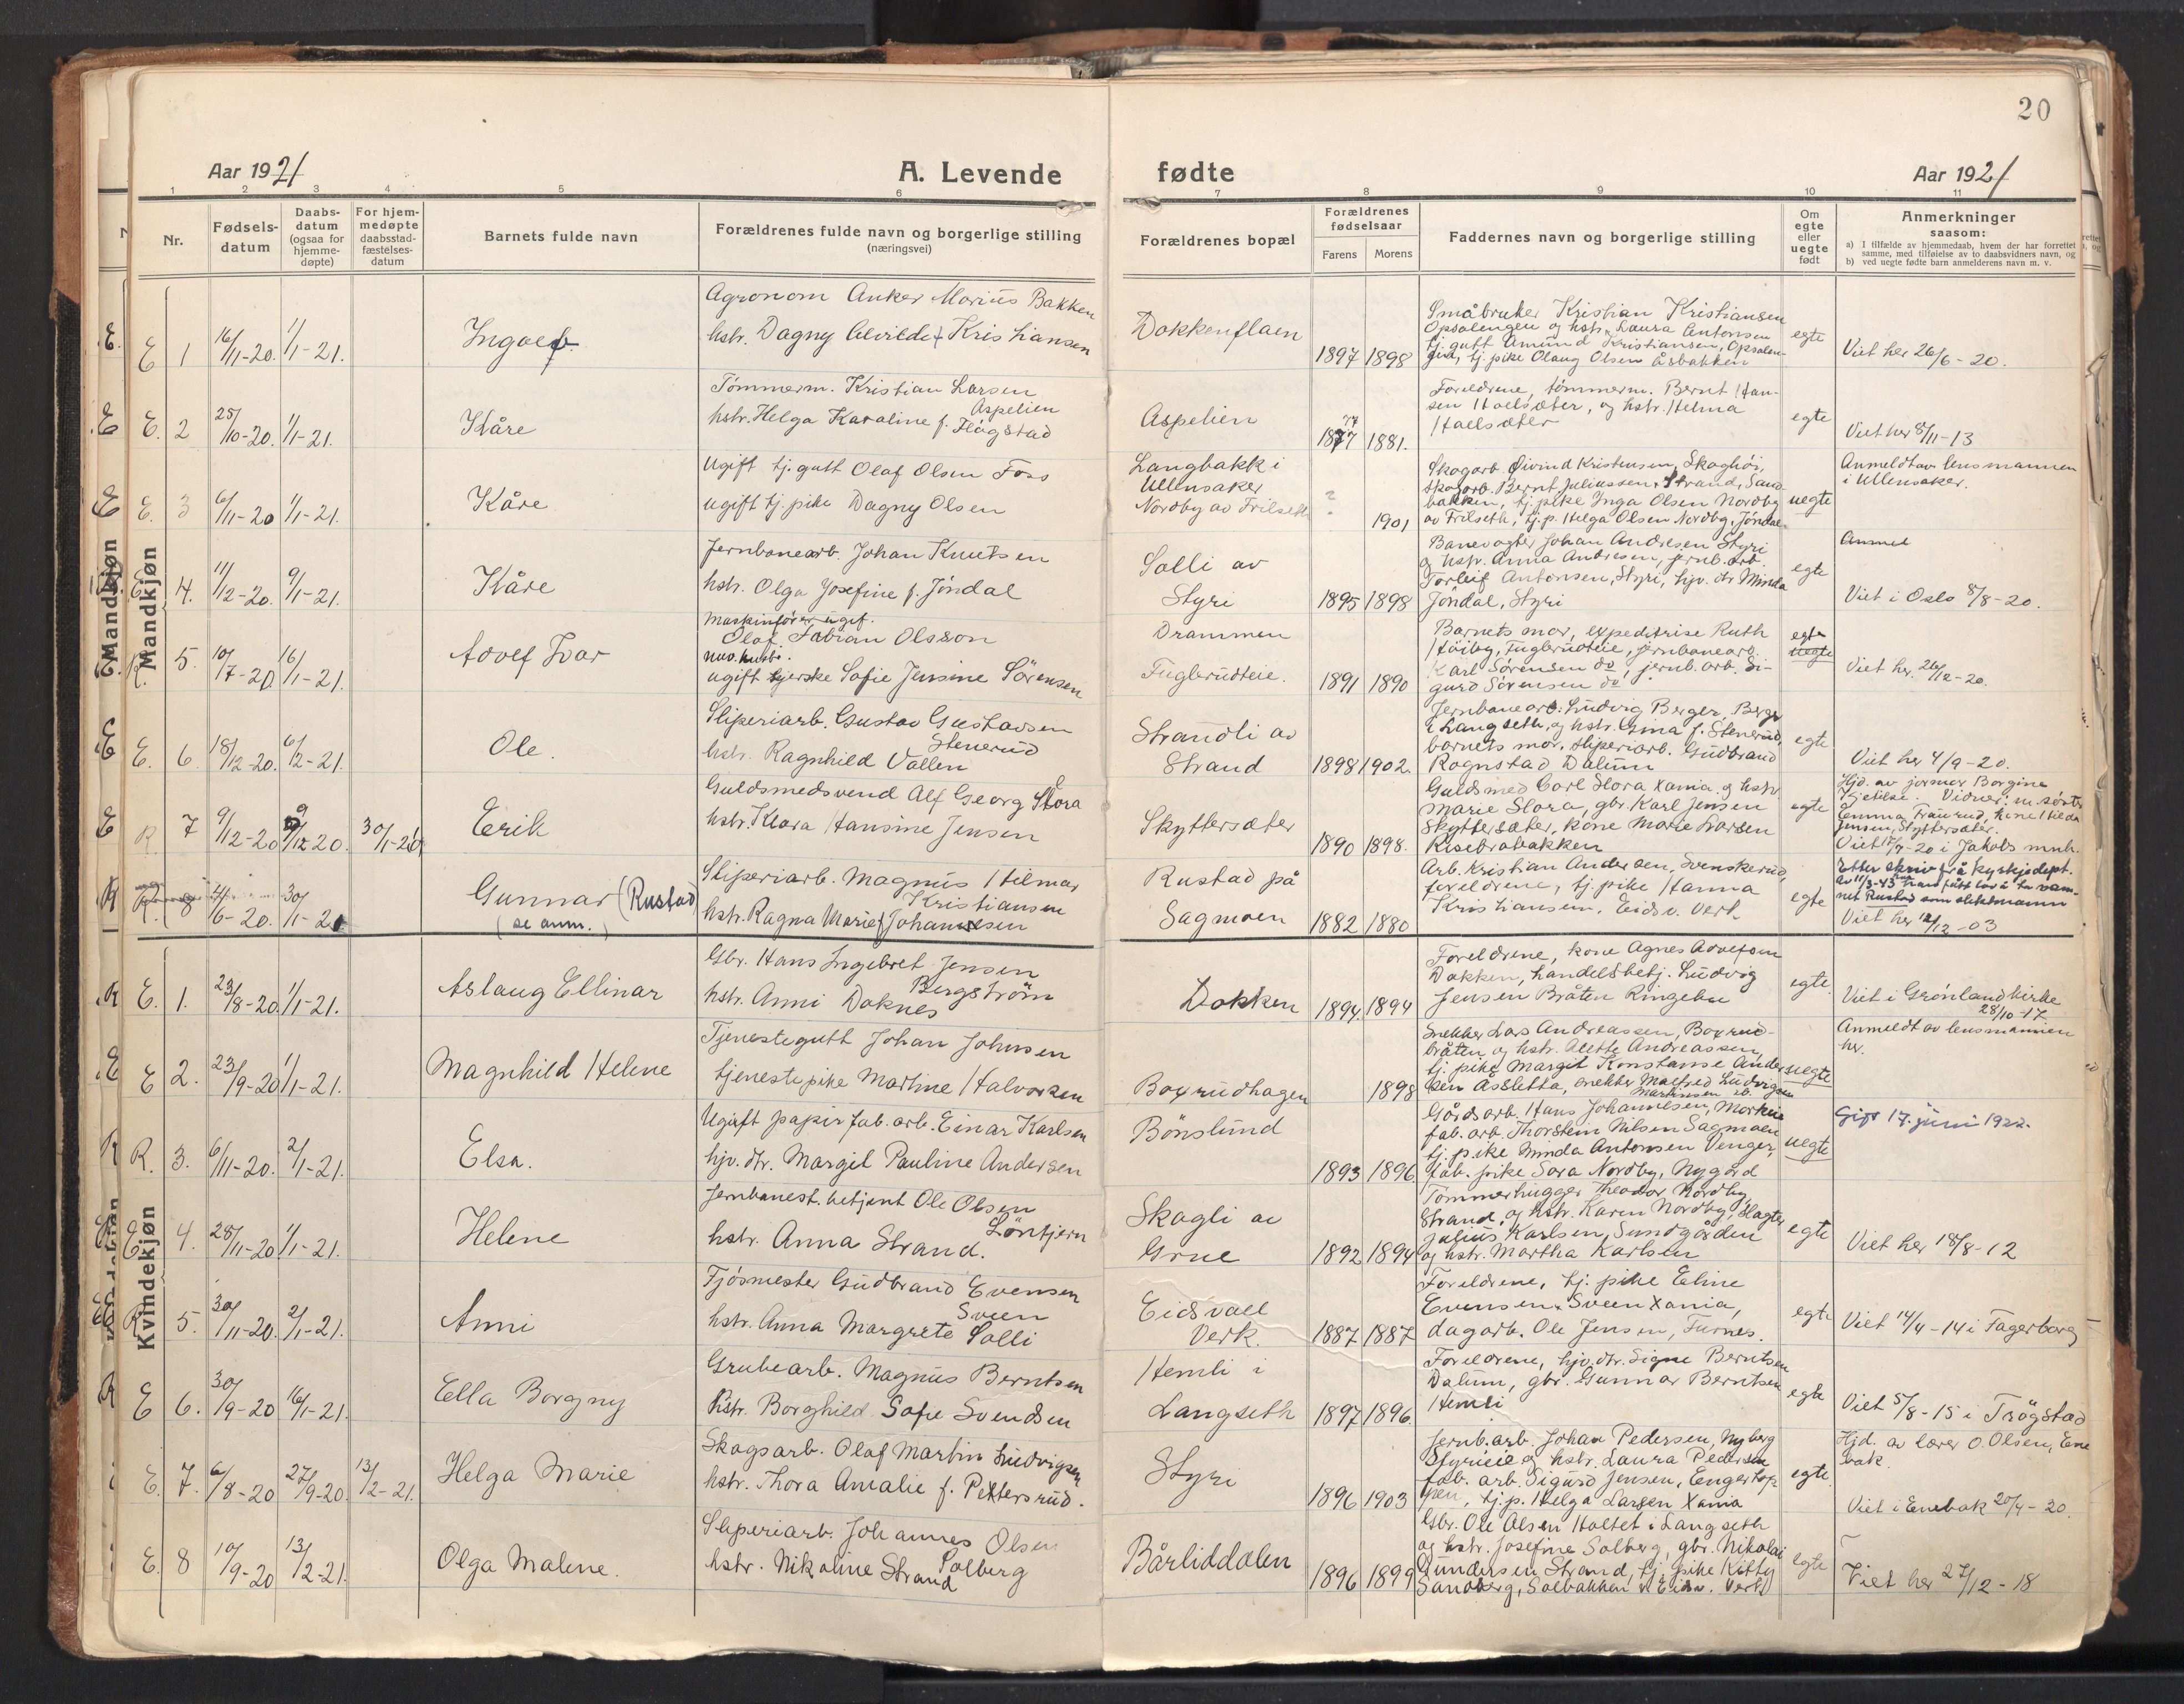 20
Aar 1921
A. Levende fødte
Aar 1921
1 2 3 4 5 6 7 8 9 10 11
Nr.
Fødsels-
datum
Daabs-
datum
(ogsaa for
hjemme-
døpte)
For hjem-
medøpte
daabsstad-
fæstelses-
datum
Barnets fulde navn
Forældrenes fulde navn og borgerlige stilling
(næringsvei)
Forældrenes bopæl
Forældrenes
fødselsaar
Farens Morens
Faddernes navn og borgerlige stilling
Om
egte
eller
uegte
født
Anmerkninger
saasom:
a) I tilfælde av hjemmedaab, hvem der har forrettet
samme, med tilføielse av to daabsvidners navn, og
b) ved uegte fødte barn anmelderens navn m. v.
Mandkjøn
E 1 16/11-20. 1/1-21.
Agronom Anker Marius Bakken
hstr. Dagny Alvilde f. Kristiansen
Dokkenflaen
1897 1898
Småbruker Kristian Kristiansen
Opsalengen og hstr. Laura Antonsen
tj. gutt Amund Kristiansen, Opsalen-
gen, tj. pike Olaug Olsen Åsbakken
egte
Viet her 26/6-20.
E. 2 25/10-20. 1/1-21.
Kåre
Tømmerm. Kristian Larsen
Aspelien
hstr. Helga Karoline f. Flågstad
Aspelien
1877 1881.
Foreldrene, tømmerm. Bernt Han-
sen Haelsæter, og hstr. Helma
Haelsæter
egte
Viet her 8/11-13
E. 3 6/11-20 1/1-21.
Kåre
Ugift tj. gutt Olaf Olsen Foss
ugift tj. pike Dagny Olsen
Langbakk i
Ullensaker
Nordby av Frilseth
? 1901
Skogarb. Øivind Kristensen, Skoghøi,
skogarb. Bernt Juliussen, Strand, Sand-
bakken, tj. pike Inga Olsen Nordby
av Frilseth, tj. p. Helga Olsen Nordby, Jøndal.
uegte
Anmeldt av lensmannen
i Ullensaker.
E. 4. 11/12-20. 9/1-21.
Kåre
Jernbanearb. Johan Knutsen
hstr. Olga Josefine f. Jøndal
Solli av
Styri
1895 1898
Banevogter Johan Andresen Styri
og hstr. Anna Andresen, jernb. arb.
Torleif Antonsen, Styri, hjv. dtr Minda
Jøndal, Styri
egte
Anmel
Viet i Oslo 8/8-20.
R. 5. 10/7-20. 16/1-21.
Adolf Ivar
Maskinfører ugif.
Olaf Fabian Olsson
nuv. hustr.
ugift syerske Sofie Jensine Sørensen
Drammen
Fuglerudteie.
1891 1890
Barnets mor, expeditrise Ruth
Høiby, Fuglerudteie, jernbanearb.
Karl Sørensen do, jernb. arb. Si-
gurd Sørensen do
egte
uegte
Viet her 26/12-20.
E. 6. 18/12-20. 6/2-21.
Ole.
Sliperiarb. Gustav Gustavsen
Stenerud
hstr. Ragnhild Vallen
Strandli av
Strand
1898 1902.
Jernbanearb. Ludvig Berger, Berge
i Langseth, og hstr. Gina f. Stenerud,
barnets mor, sliperiarb. Gudbrand
Rognstad Dalum
egte
Viet her 4/9-20.
R 7 9/12-20 9/12 20. 30/1-20
Erik
Guldsmedsvend Alf Georg Slora
hstr. Klara Hansine Jensen
Skyttersæter
1890 1898.
Guldsmed Carl Slora Xania. og hstr
Marie Slora, gbr. Karl Jensen
Skyttersæter, kone Marie Larsen
Risebrobakken
egte
Hjd. av jormor Borgine
Kjetilse. Vidner:
Jensen, Skyttersæter.
Viet 17/7-20 i Jakobs mnh.
R. 8 4/6-20. 30/1-21
Gunnar (Rustad)
(se anm.)
Sliperiarb. Magnus Hilmar
Kristiansen
hstr. Ragna Marie f. Johansen
Rustad på
Sagmoen
1882 1880
Arb. Kristian Andersen, Svenskerud,
foreldrene, tj. pike Hanna
Kristiansen. Eidsv. Verk.
egte
Etter skriv frå kyrkjedept.
av 11/3-43 han fått lov å ta nam-
net Rustad som slektsnamn
Viet her 12/12-03
Kvindekjøn
E. 1. 23/8-20. 1/1-21.
Aslaug Ellinar
Gbr. Hans Ingebret Jensen
Bergstrøm
hstr. Anni Doknes
Dokken
1894. 1894
Foreldrene, kone Agnes Adolfsen
Dokken, handelsbetj. Ludvig
Jensen Bråten Ringebu
egte.
Viet i Grønland kirke
28/10-17
E 2. 23/9-20 1/1-21.
Magnhild Helene
Tjenestegutt Johan Johnsen
tjenestepike Martine Halvorsen
Boxrudhagen
1898
Snekker Lars Andreassen, Boxrud-
bråten og hstr. Alette Andreassen,
tj. pike Margit Konstanse Ander-
sen Åsletta, snekker Malfred Ludvigsen
uegte
Anmeldt av lensmannen
her.
R. 3. 6/11-20. 2/1-21.
Elsa.
Ugift papirfab. arb. Einar Karlsen
hjv. dtr. Margit Pauline Andersen
Bönslund
1893 1896
Gårdsarb. Hans Johannesen, Morkus
fab. arb. Thorstein Nilsen Sagmoen
tj. pike Minda Antonsen Venger,
fab. pike Sara Nordby, Nygård
uegte
Gift 17. juni 1922.
E. 4. 28/11-20 1/1-21.
Helene
Jernbanest. betjent Ole Olsen
Löntjern
hstr. Anna Strand.
Skogli av
Grue
1892 1894
Tömmerhugger Theodor Nordby
Strand, og hstr. Karen Nordby, slagter
Julius Karlsen, Sundgården
og hstr. Martha Karlsen
egte
Viet her 18/8-12
R 5. 30/11-20. 2/1-21.
Anni
Fjøsmester Gudbrand Evensen
Sveen
hstr. Anna Margrete Solli
Eidsvoll
Verk.
1887 1887
Foreldrene, tj. pike Eline
Evensen Sveen Xania,
dagarb. Ole Jensen, Furnes.
egte
Viet 14/4-14 i Fagerborg
E 6. 30/9-20 16/1-21.
Ella Borgny
Grubearb. Magnus Berntsen
hstr. Borghild Sofie Svendsen
Hemli i
Langseth
1897 1896.
Foreldrene, hjv. dtr. Signe Berntsen
Dalum, gbr. Gunnar Berntsen
Hemli
egte
Viet 5/8-15 i Trøgstad
E. 7. 6/8-20 27/9-20 13/2-21.
Helga Marie
Skogsarb. Olaf Martin Ludvigsen
hstr. Thora Amalie f. Pettersrud.
Styri
1896 1903
Jernb. arb. Johan Pedersen, Nyberg
Styrieie og hstr. Laura Pedersen
fab. arb. Sigurd Jensen, Engertop-
pen, tj. p. Helga Larsen Xania
egte
Hjd. av lærer O. Olsen, Ene
bak.
Viet i Enebak 20/4-20.
E. 8 10/9-20 13/2-21.
Olga Malene.
Sliperiarb. Johannes Olsen
Solberg
hstr. Nikoline Strand
Bårliddalen
1896 1899
Gbr. Ole Olsen Holtet i Langseth
og hstr. Josefine Solberg, gbr. Nikolai
Gundersen Strand, tj. pike Kitty
Sandberg, Solbakken v. Eidsv. Verk
egte
Viet her 27/12-18